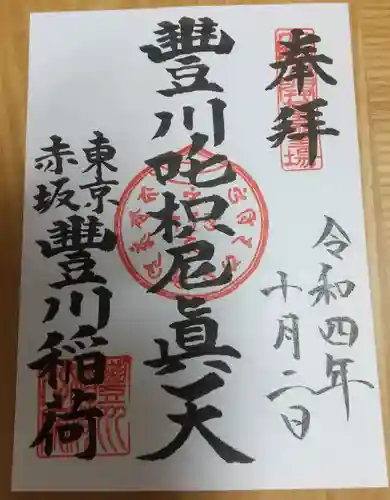 奉拝
令和四年
十月二日
豐川吒枳尼眞天
東京
赤坂
豐川稲荷